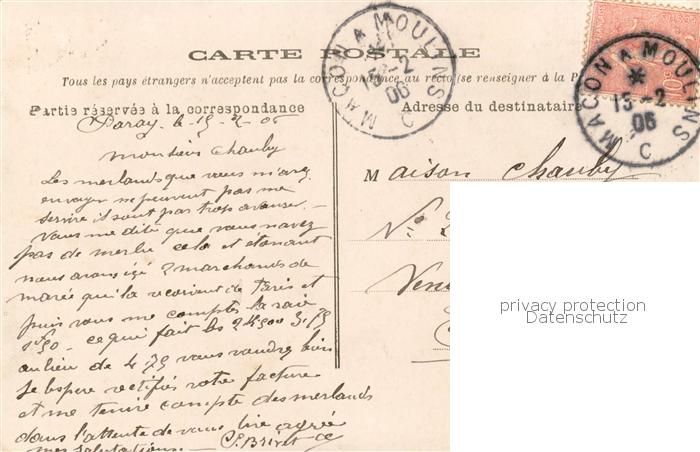 CARTE POSTALE
Tous les pays étrangers n'acceptent pas la correspondance au recto (se renseigner à la P
Partie réservée à la correspondance
Adresse du destinataire
MACON A MOULINS
15-2
06
C
MACON A MOULINS
15-2
06
C
10
Paray, le 15-2-06
Monsieur Chauby
Les merlans que vous m'avez
envoyer ne peuvent pas me
servire il sont pas trop avancé.
Vous me dite que vous navez
pas de merlu cela et étonant
nous avons ici 2 marchands de
marée qui la reçoivent de Paris et
puis vous me comptes la raie
1f50 - ce qui fait les 2k500 3,75
au lieu de 4,75 vous voudrez bien
je l'espere rectifiér votre facture
et me tenire compte des merlands
dans l'attente de vous lire agrée
mes salutations.
Maison Chauby
N° 2
Ven
privacy protection
Datenschutz